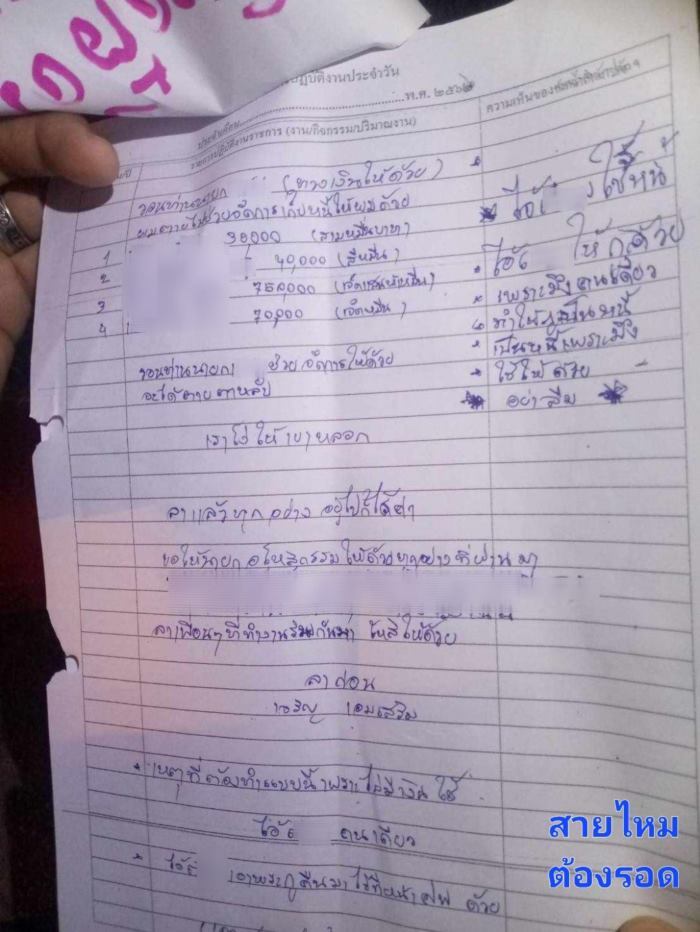 ปฏิบัติงานประจำวัน
พ.ศ. ๒๕๖๒
รายการปฏิบัติงานราชการ (งาน/กิจกรรม/ปริมาณงาน)
ความเห็นของ
วอนท่านนายก (ทวงเงินให้ด้วย)
ผมตายไปช่วยจัดการเก็บหนี้ให้ผมด้วย
1 30000 (สามหมื่นบาท)
2 40,000 (สี่หมื่น)
3 750,000 (เจ็ดแสนห้าหมื่น)
4 70,000 (เจ็ดหมื่น)
วอนท่านนายก ช่วยจัดการให้ด้วย
จะได้ตายตาหลับ
ใช้หนี้
ให้กูด้วย
เพราะมึงคนเดียว
ทำให้กูเป็นหนี้
เป็นหนี้เพราะมึง
ใช้ให้ด้วย
อย่าลืม
เราโง่ให้เขาหลอก
ลาแล้วทุกอย่าง อยู่ไปก็ไร้ค่า
ขอให้นายกอโหสิกรรมให้ด้วยทุกอย่างที่ผ่านมา
ลาเพื่อนๆที่ทำงานร่วมกันมา โหสิให้ด้วย
ลาก่อน
เจริญ เอมเสริม
* เหตุที่ต้องทำแบบนี้เพราะไม่มีเงินใช้
คนเดียว
* เอาพระกูคืนมาไว้ที่หน้าศพ ด้วย
สายไหม
ต้องรอด